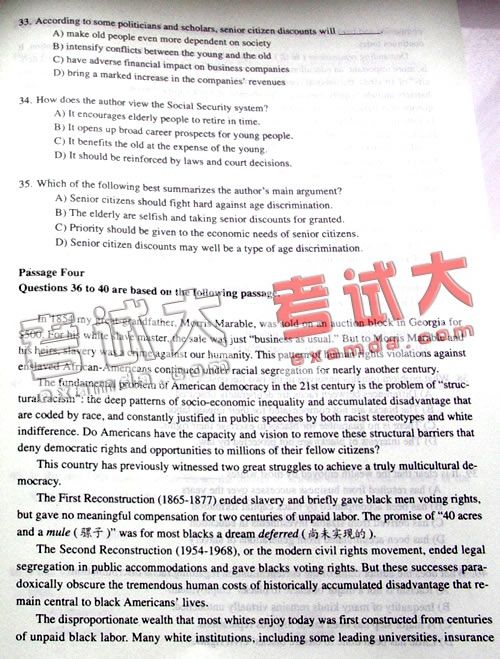 33. According to some politicians and scholars, senior citizen discounts will
A) make old people even more dependent on society
B) intensify conflicts between the young and the old
C) have adverse financial impact on business companies
D) bring a marked increase in the companies' revenues
34. How does the author view the Social Security system?
A) It encourages elderly people to retire in time.
B) It opens up broad career prospects for young people.
C) It benefits the old at the expense of the young.
D) It should be reinforced by laws and court decisions.
35. Which of the following best summarizes the author's main argument?
A) Senior citizens should fight hard against age discrimination.
B) The elderly are selfish and taking senior discounts for granted.
C) Priority should be given to the economic needs of senior citizens.
D) Senior citizen discounts may well be a type of age discrimination.
考试大
examda.com
Passage Four
Questions 36 to 40 are based on the following passage.
考试大
examda.com
In 1854 my great-grandfather, Morris Marable, was sold on an auction block in Georgia for
$500. For his white slave master, the sale was just "business as usual." But to Morris Marable and
his heirs, slavery was a crime against our humanity. This pattern of human rights violations against
enslaved African-Americans continued under racial segregation for nearly another century.
The fundamental problem of American democracy in the 21st century is the problem of "struc-
tural racism": the deep patterns of socio-economic inequality and accumulated disadvantage that
are coded by race, and constantly justified in public speeches by both racist stereotypes and white
indifference. Do Americans have the capacity and vision to remove these structural barriers that
deny democratic rights and opportunities to millions of their fellow citizens?
This country has previously witnessed two great struggles to achieve a truly multicultural de-
mocracy.
The First Reconstruction (1865-1877) ended slavery and briefly gave black men voting rights,
but gave no meaningful compensation for two centuries of unpaid labor. The promise of "40 acres
and a mule (骡子)" was for most blacks a dream deferred (尚未实现的).
The Second Reconstruction (1954-1968), or the modern civil rights movement, ended legal
segregation in public accommodations and gave blacks voting rights. But these successes para-
doxically obscure the tremendous human costs of historically accumulated disadvantage that re-
main central to black Americans' lives.
The disproportionate wealth that most whites enjoy today was first constructed from centuries
of unpaid black labor. Many white institutions, including some leading universities, insurance